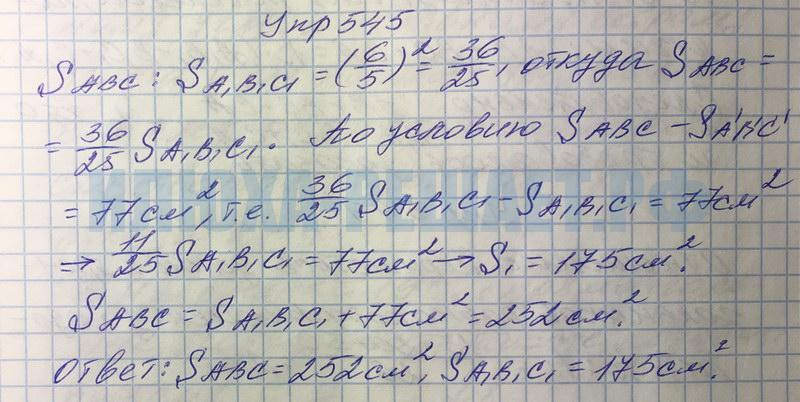 Упр 545
S ABC : S A₁B₁C₁ = (6/5)² = 36/25, откуда S ABC =
= 36/25 S A₁B₁C₁. По условию S ABC – S A'B'C'
= 77 см², т.е. 36/25 S A₁B₁C₁ – S A₁B₁C₁ = 77 см²
⇒ 11/25 S A₁B₁C₁ = 77 см² → S₁ = 175 см².
S ABC = S A₁B₁C₁ + 77 см² = 252 см².
Ответ: S ABC = 252 см², S A₁B₁C₁ = 175 см².